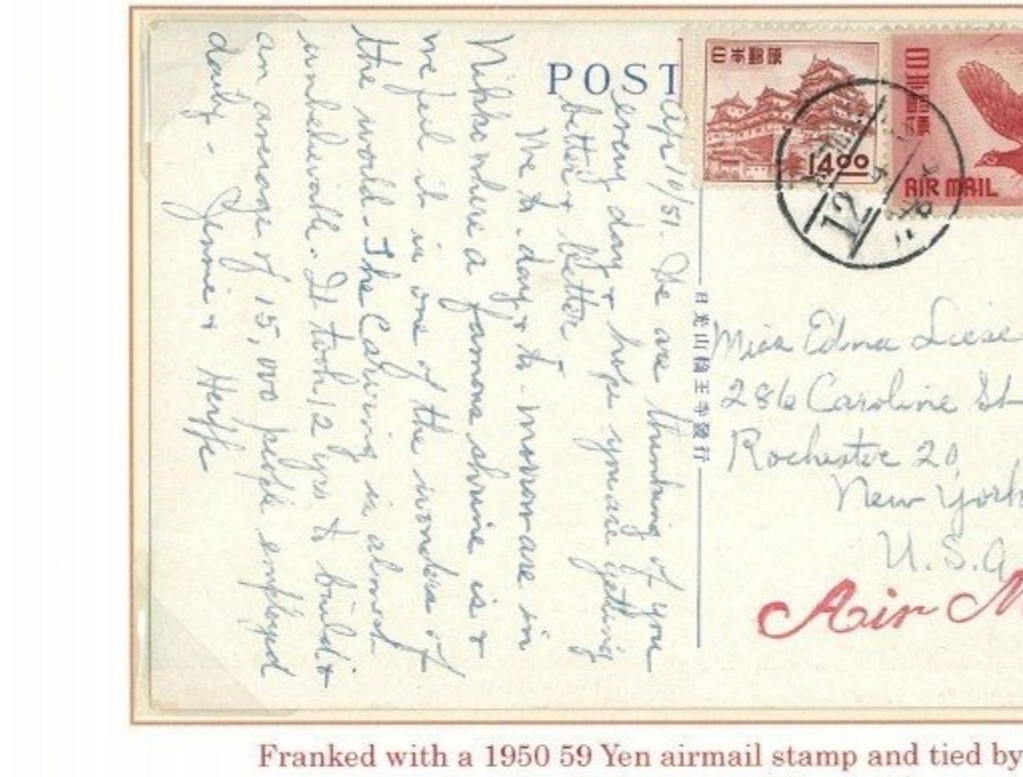 POST
日本郵便
14.00
日本郵便
AIR MAIL
12
日光山輪王寺發行
Apr 10/51. We are thinking of you
every day & hope you are getting
better & better
We to-day & to-morrow are in
Nikko where a famous shrine is &
we feel it is one of the wonders of
the world. The Carving is almost
unbelievable. It took 12 yrs to build &
an average of 15,000 people employed
daily - Jennie &
Miss Edna
286 Caroline St
Rochester 20,
New York
U.S.A
Air M
Franked with a 1950 59 Yen airmail stamp and tied by